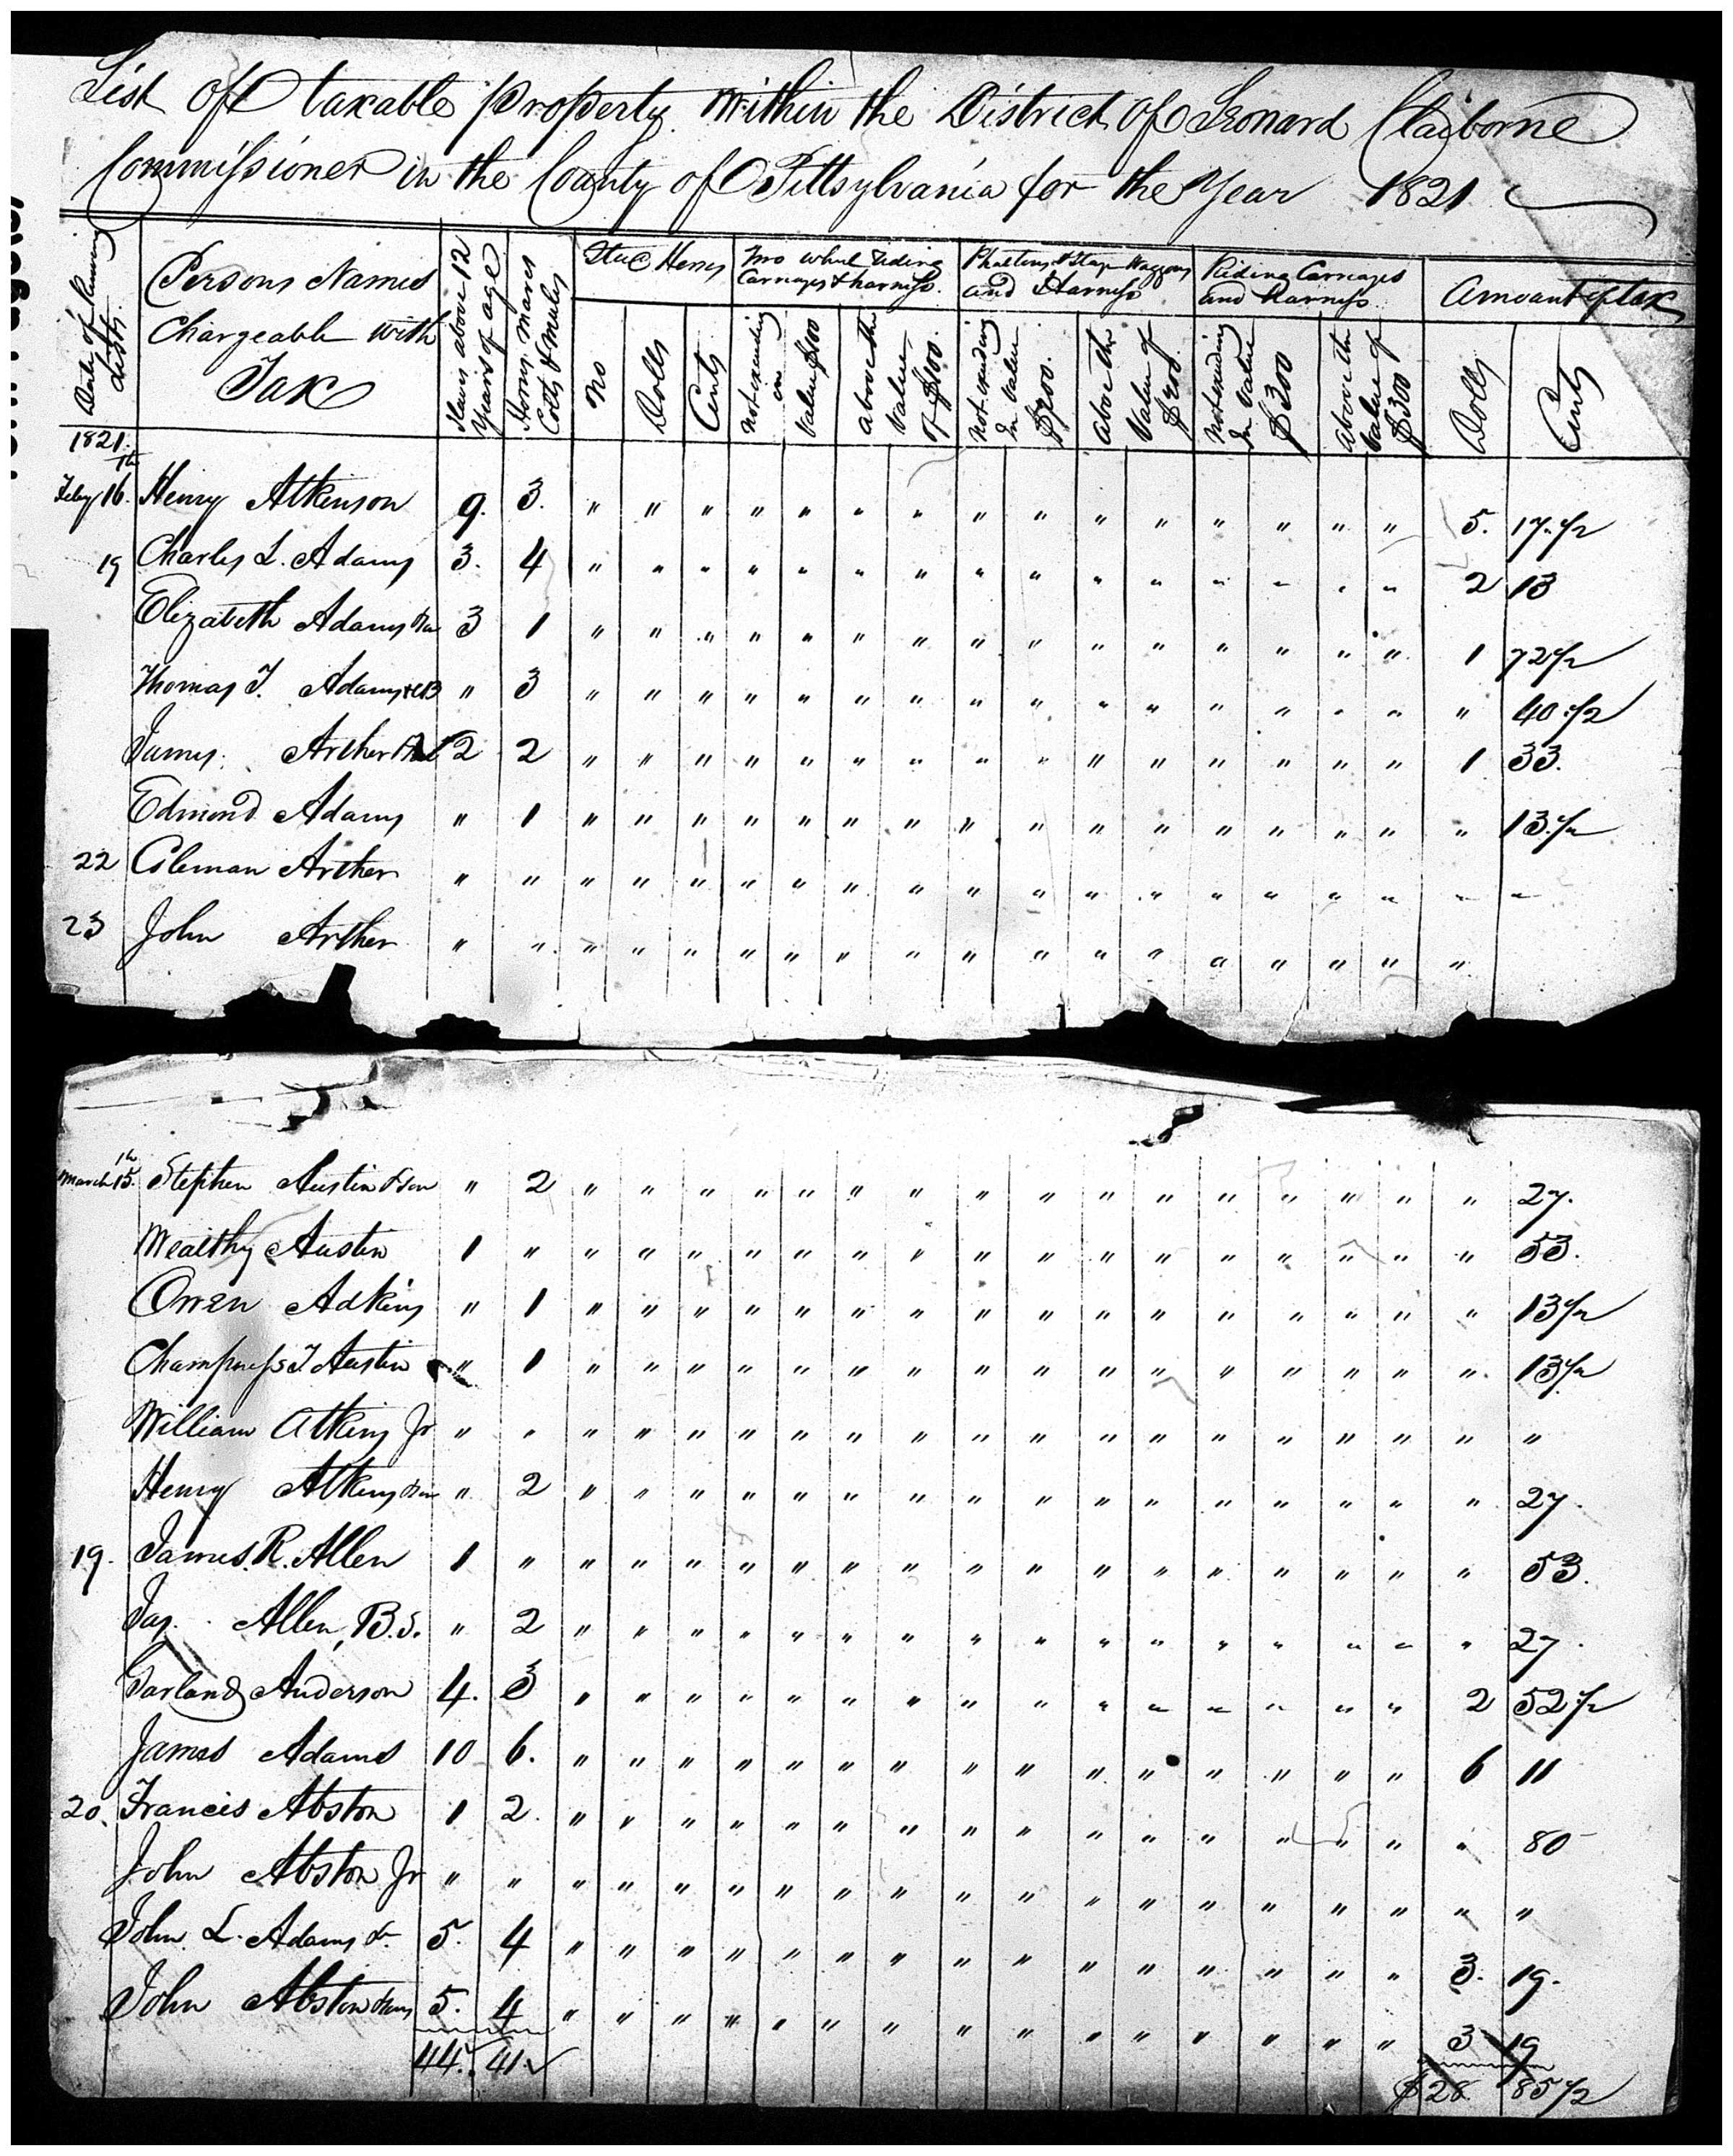 List of taxable property within the District of Leonard Claiborne
Commissioner in the County of Pittsylvania for the Year 1821
Date of
Lists
Persons Names
Chargeable with
Tax
Slaves above 12
Years of age
Horses mares
Colts & mules
Stud Horses
No
Dolls
Cents
Two wheel Riding
Carriages & harness
Not exceeding
in
Value $100
above the
Value
of $100.
Phaetons & Stage Waggons
and Harness
Not exceeding
In Value
$200.
Above the
Value of
$200.
Riding Carriages
and harness
Not exceeding
In Value
$300
Above the
Value of
$300
Amount of tax
Dolls
Cents
1821.
Feby 16th. Henry Atkinson 9. 3. " " " " " " " " " " " " " " " 5. 17.1/2
19 Charles L. Adams 3. 4 " " " " " " " " " " " " " " " 2 13
Elizabeth Adams 3 1 " " " " " " " " " " " " " " " 1 72 1/2
Thomas T. Adams " 3 " " " " " " " " " " " " " " " " 40.1/2
James Arther 2 2 " " " " " " " " " " " " " " " 1 33.
Edmond Adams " 1 " " " " " " " " " " " " " " " " 13.1/2
22 Coleman Arther " " " " " " " " " " " " " " " " " " "
23 John Arther " " " " " " " " " " " " " " " " " "
March 15th. Stephen Austin & son " 2 " " " " " " " " " " " " " " " " 27.
Wealthy Austin 1 " " " " " " " " " " " " " " " " " 53.
Owen Adkins " 1 " " " " " " " " " " " " " " " " 13 1/2
Champness T Austin " 1 " " " " " " " " " " " " " " " " 13 1/2
William Atkins Jr " " " " " " " " " " " " " " " " " " "
Henry Atkins " 2 " " " " " " " " " " " " " " " " 27.
19. James. R. Allen 1 " " " " " " " " " " " " " " " " " 53.
Jas. Allen, B.S. " 2 " " " " " " " " " " " " " " " " 27.
Garland Anderson 4. 3 " " " " " " " " " " " " " " " 2 52 1/2
James Adams 10 6. " " " " " " " " " " " " " " " 6 11
20. Francis Abston 1 2. " " " " " " " " " " " " " " " " 80
John Abston Jr " " " " " " " " " " " " " " " " " " "
John. L. Adams 5. 4 " " " " " " " " " " " " " " " 3. 19.
John Abston 5. 4 " " " " " " " " " " " " " " " 3 19
44. 41. $28. 85 1/2